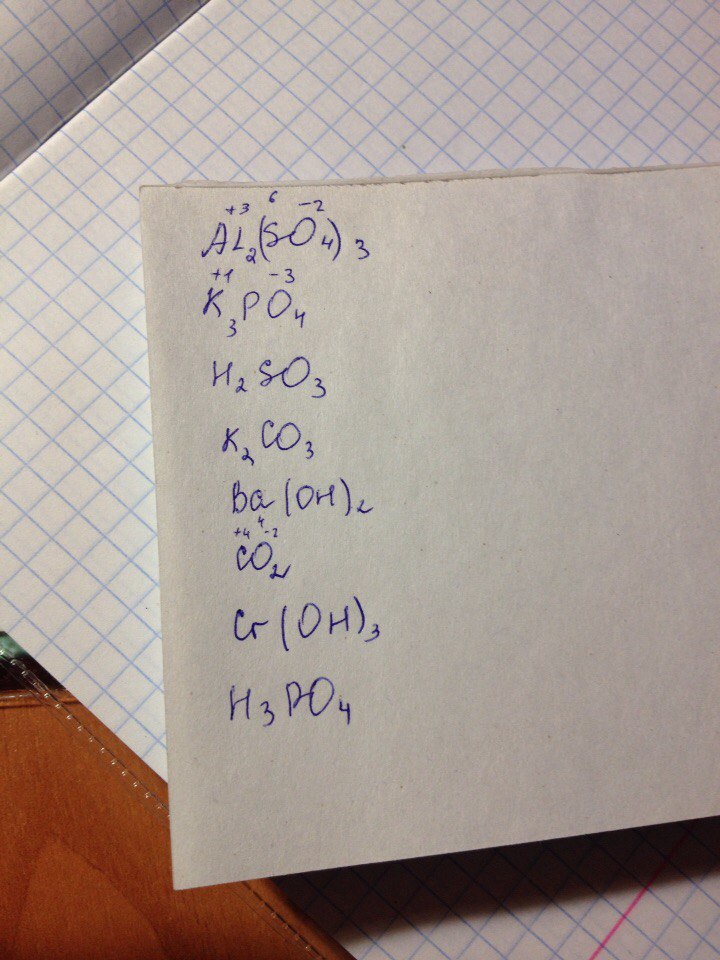 +3 6 -2
Al₂(SO₄)₃
+1 -3
K₃PO₄
H₂SO₃
K₂CO₃
Ba(OH)₂
+4 4 -2
CO₂
Cr(OH)₃
H₃PO₄